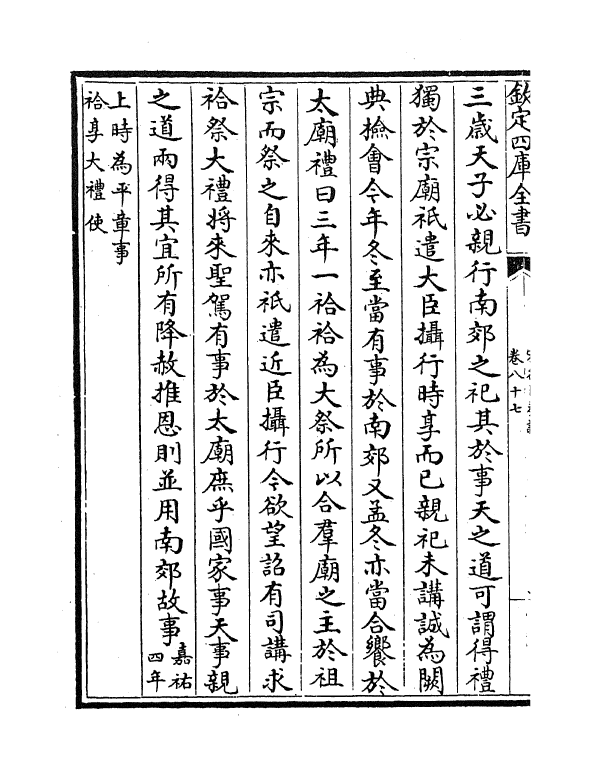 欽定四庫全書
卷八十七
三歲天子必親行南郊之祀其於事天之道可謂得禮
獨於宗廟祇遣大臣攝行時享而已親祀未講誠為闕
典撿會今年冬至當有事於南郊又孟冬亦當合饗於
太廟禮曰三年一祫祫為大祭所以合羣廟之主於祖
宗而祭之自來亦祇遣近臣攝行今欲望詔有司講求
祫祭大禮將來聖駕有事於太廟庶乎國家事天事親
之道兩得其宜所有降赦推恩則並用南郊故事嘉祐
四年
上時為平章事
祫享大禮使